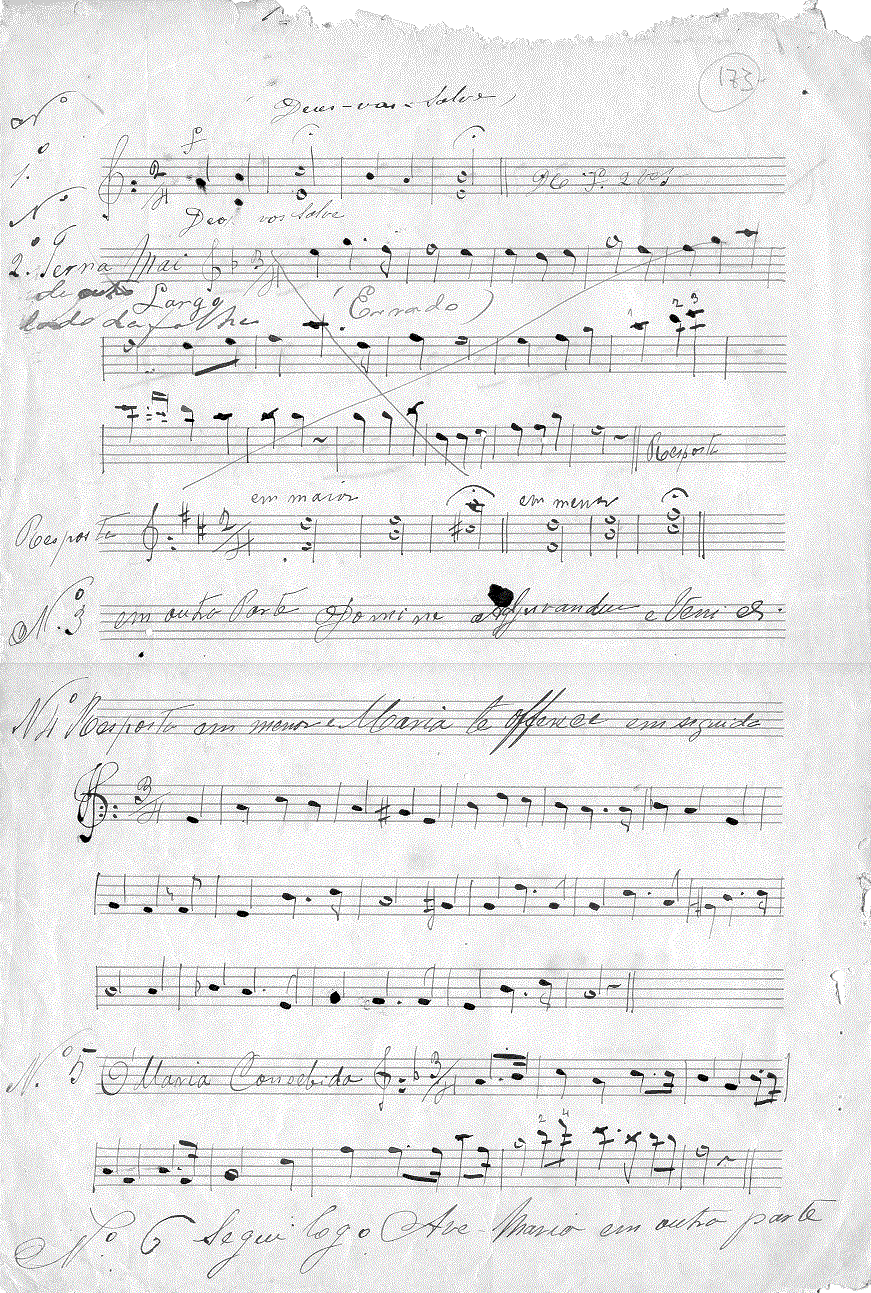 173
Deus-vos-Salve
Nº 1.º
DC Iº 2 ves
Deos vos Salve
Nº 2.º Terna Mai
outro Largo
lado da folha (Errado)
1 2 3
Resposta
em maior em menor
Resposta
N.º 3 em outra Parte Domine Adjuvandu e Veni &.
Nº 4 Resposta em menor e Maria te offerece em seguida
N.º 5 O' Maria Consebida
2 4
Nº 6 Segui logo Ave-Maria em outra parte